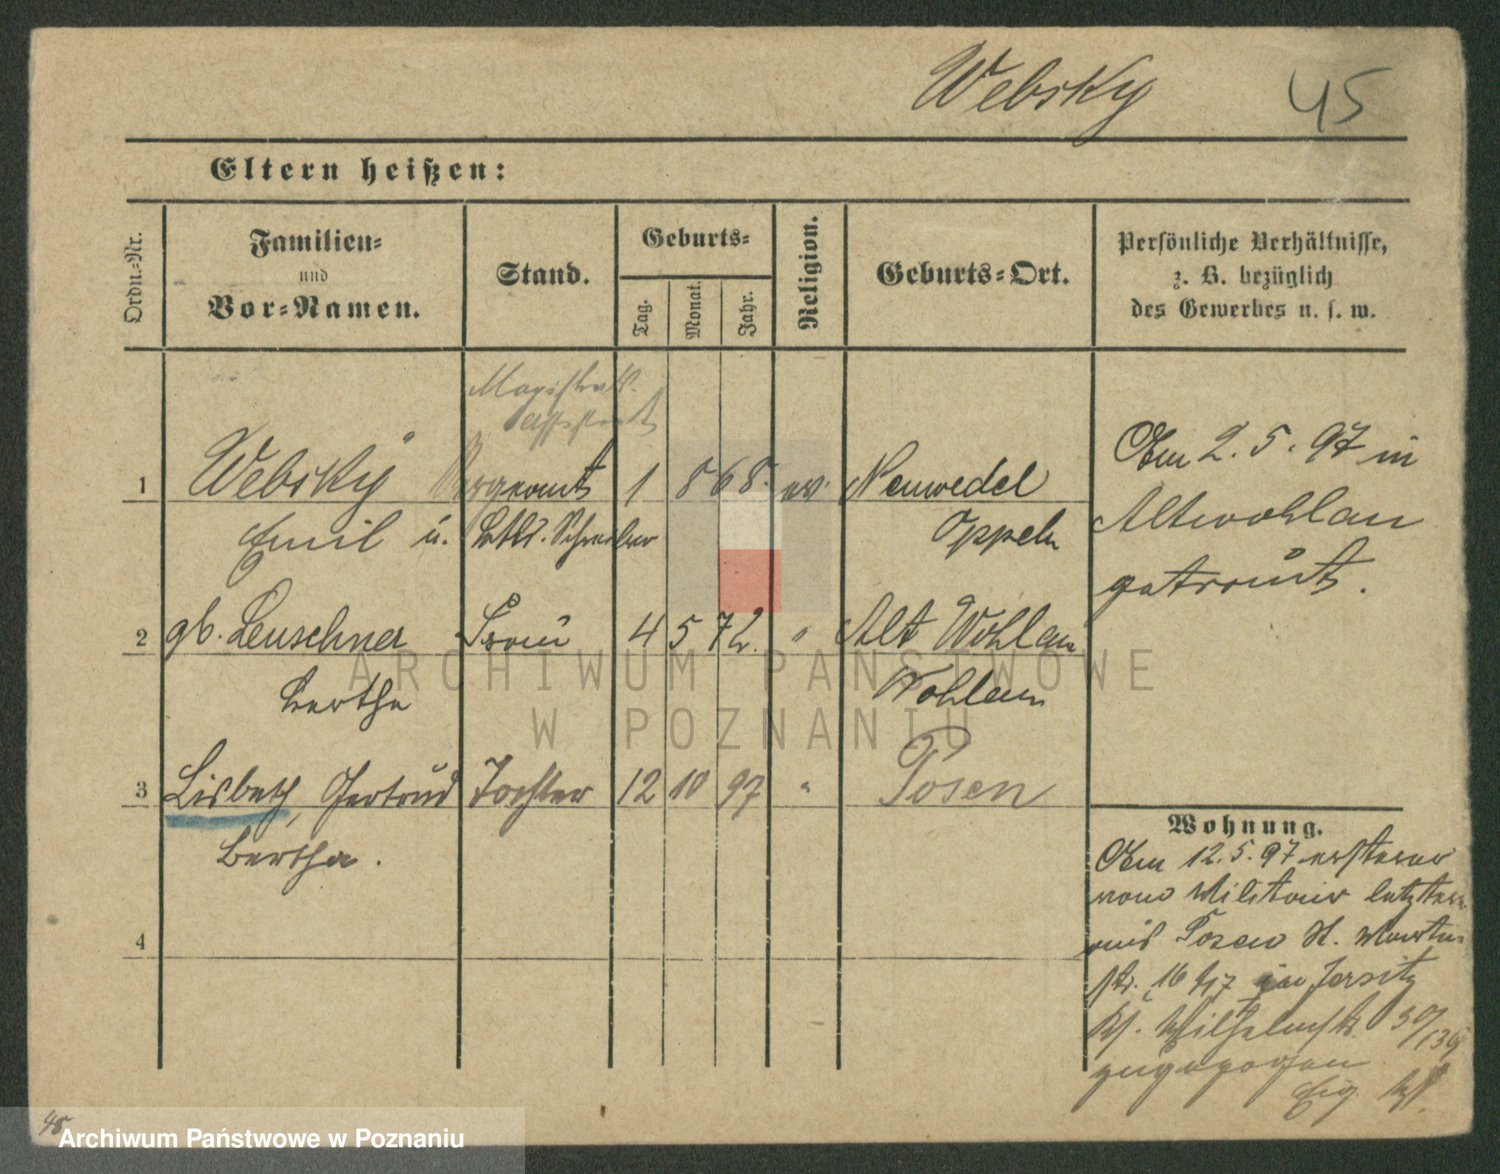 Websky 45
Eltern heißen:
Ordn.-Nr.
Familien-
und
Vor-Namen.
Stand.
Geburts-
Tag.
Monat.
Jahr.
Religion.
Geburts-Ort.
Persönliche Verhältnisse,
z. B. bezüglich
des Gewerbes u. s. w.
Magistrats-
Assistent
1 Websky Sergeant 1 8 68. ev. Neuwedel
Emil u. Schreiber Oppeln
2 gb. Leuschner Frau 4 5 72. " Alt Wohlau
Bertha Wohlau
3 Lisbeth, Gertrud Tochter 12 10 97 " Posen
Bertha.
4
Am 2.5.97 in
Altwohlau
getraut.
Wohnung.
Am 12.5.97 ersterer
vom Militair letztere
aus Posen St. Martin
str. 16/17 in Jersitz
Wilhelmstr.
zugezogen
45
ARCHIWUM PAŃSTWOWE
W POZNANIU
Archiwum Państwowe w Poznaniu